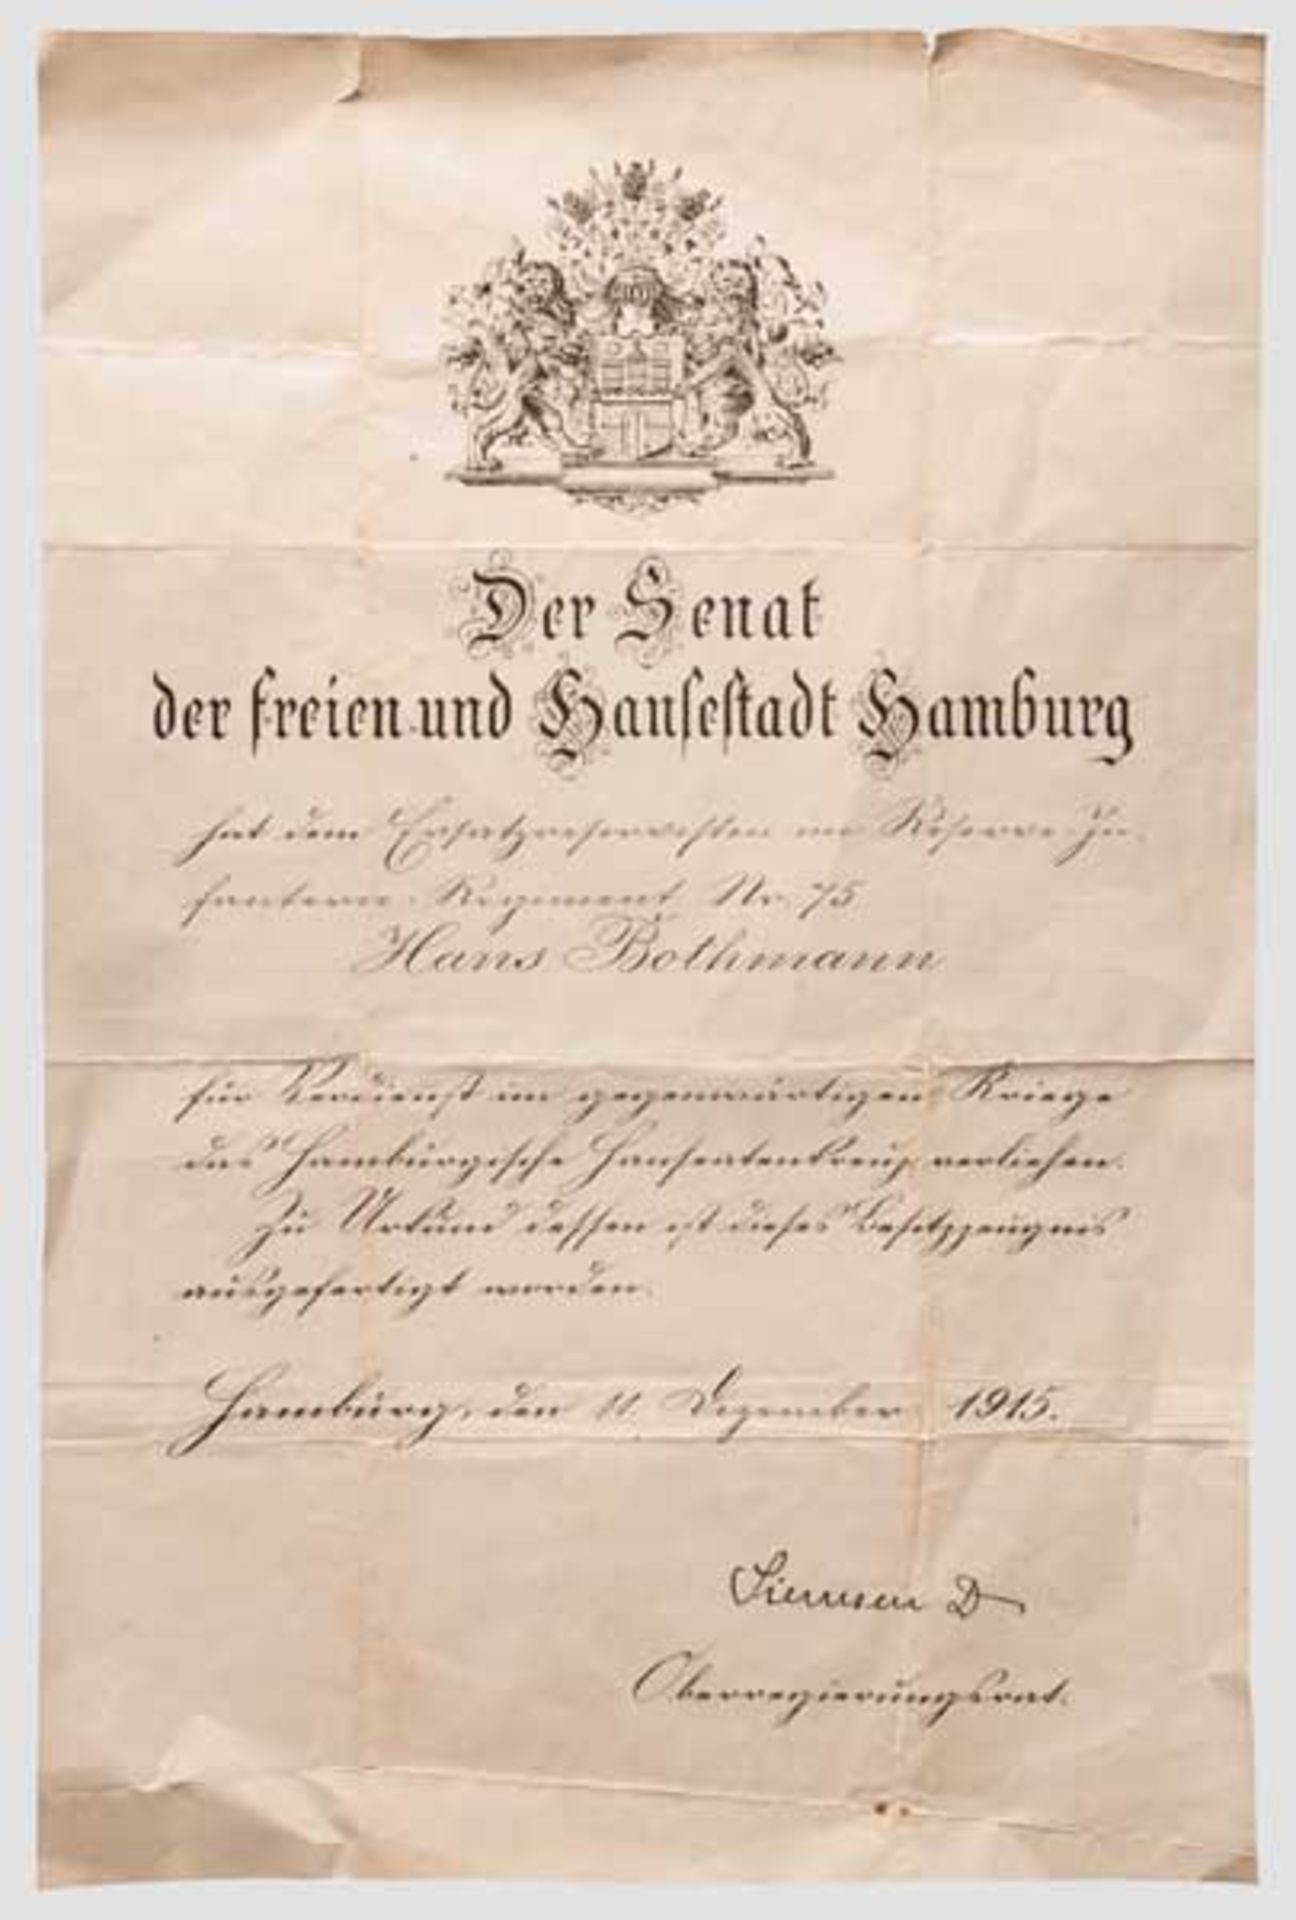 Der Senat
der freien und Hansestadt Hamburg
hat dem Ersatzreservisten im Reserve-In-
fanterie-Regiment Nr. 75
Hans Bothmann
für Verdienst im gegenwärtigen Kriege
das Hamburgische Hanseatenkreuz verliehen.
Zu Urkund dessen ist dieses Besitzzeugnis
ausgefertigt worden.
Hamburg, den 11. Dezember 1915.
Oberregierungsrat.